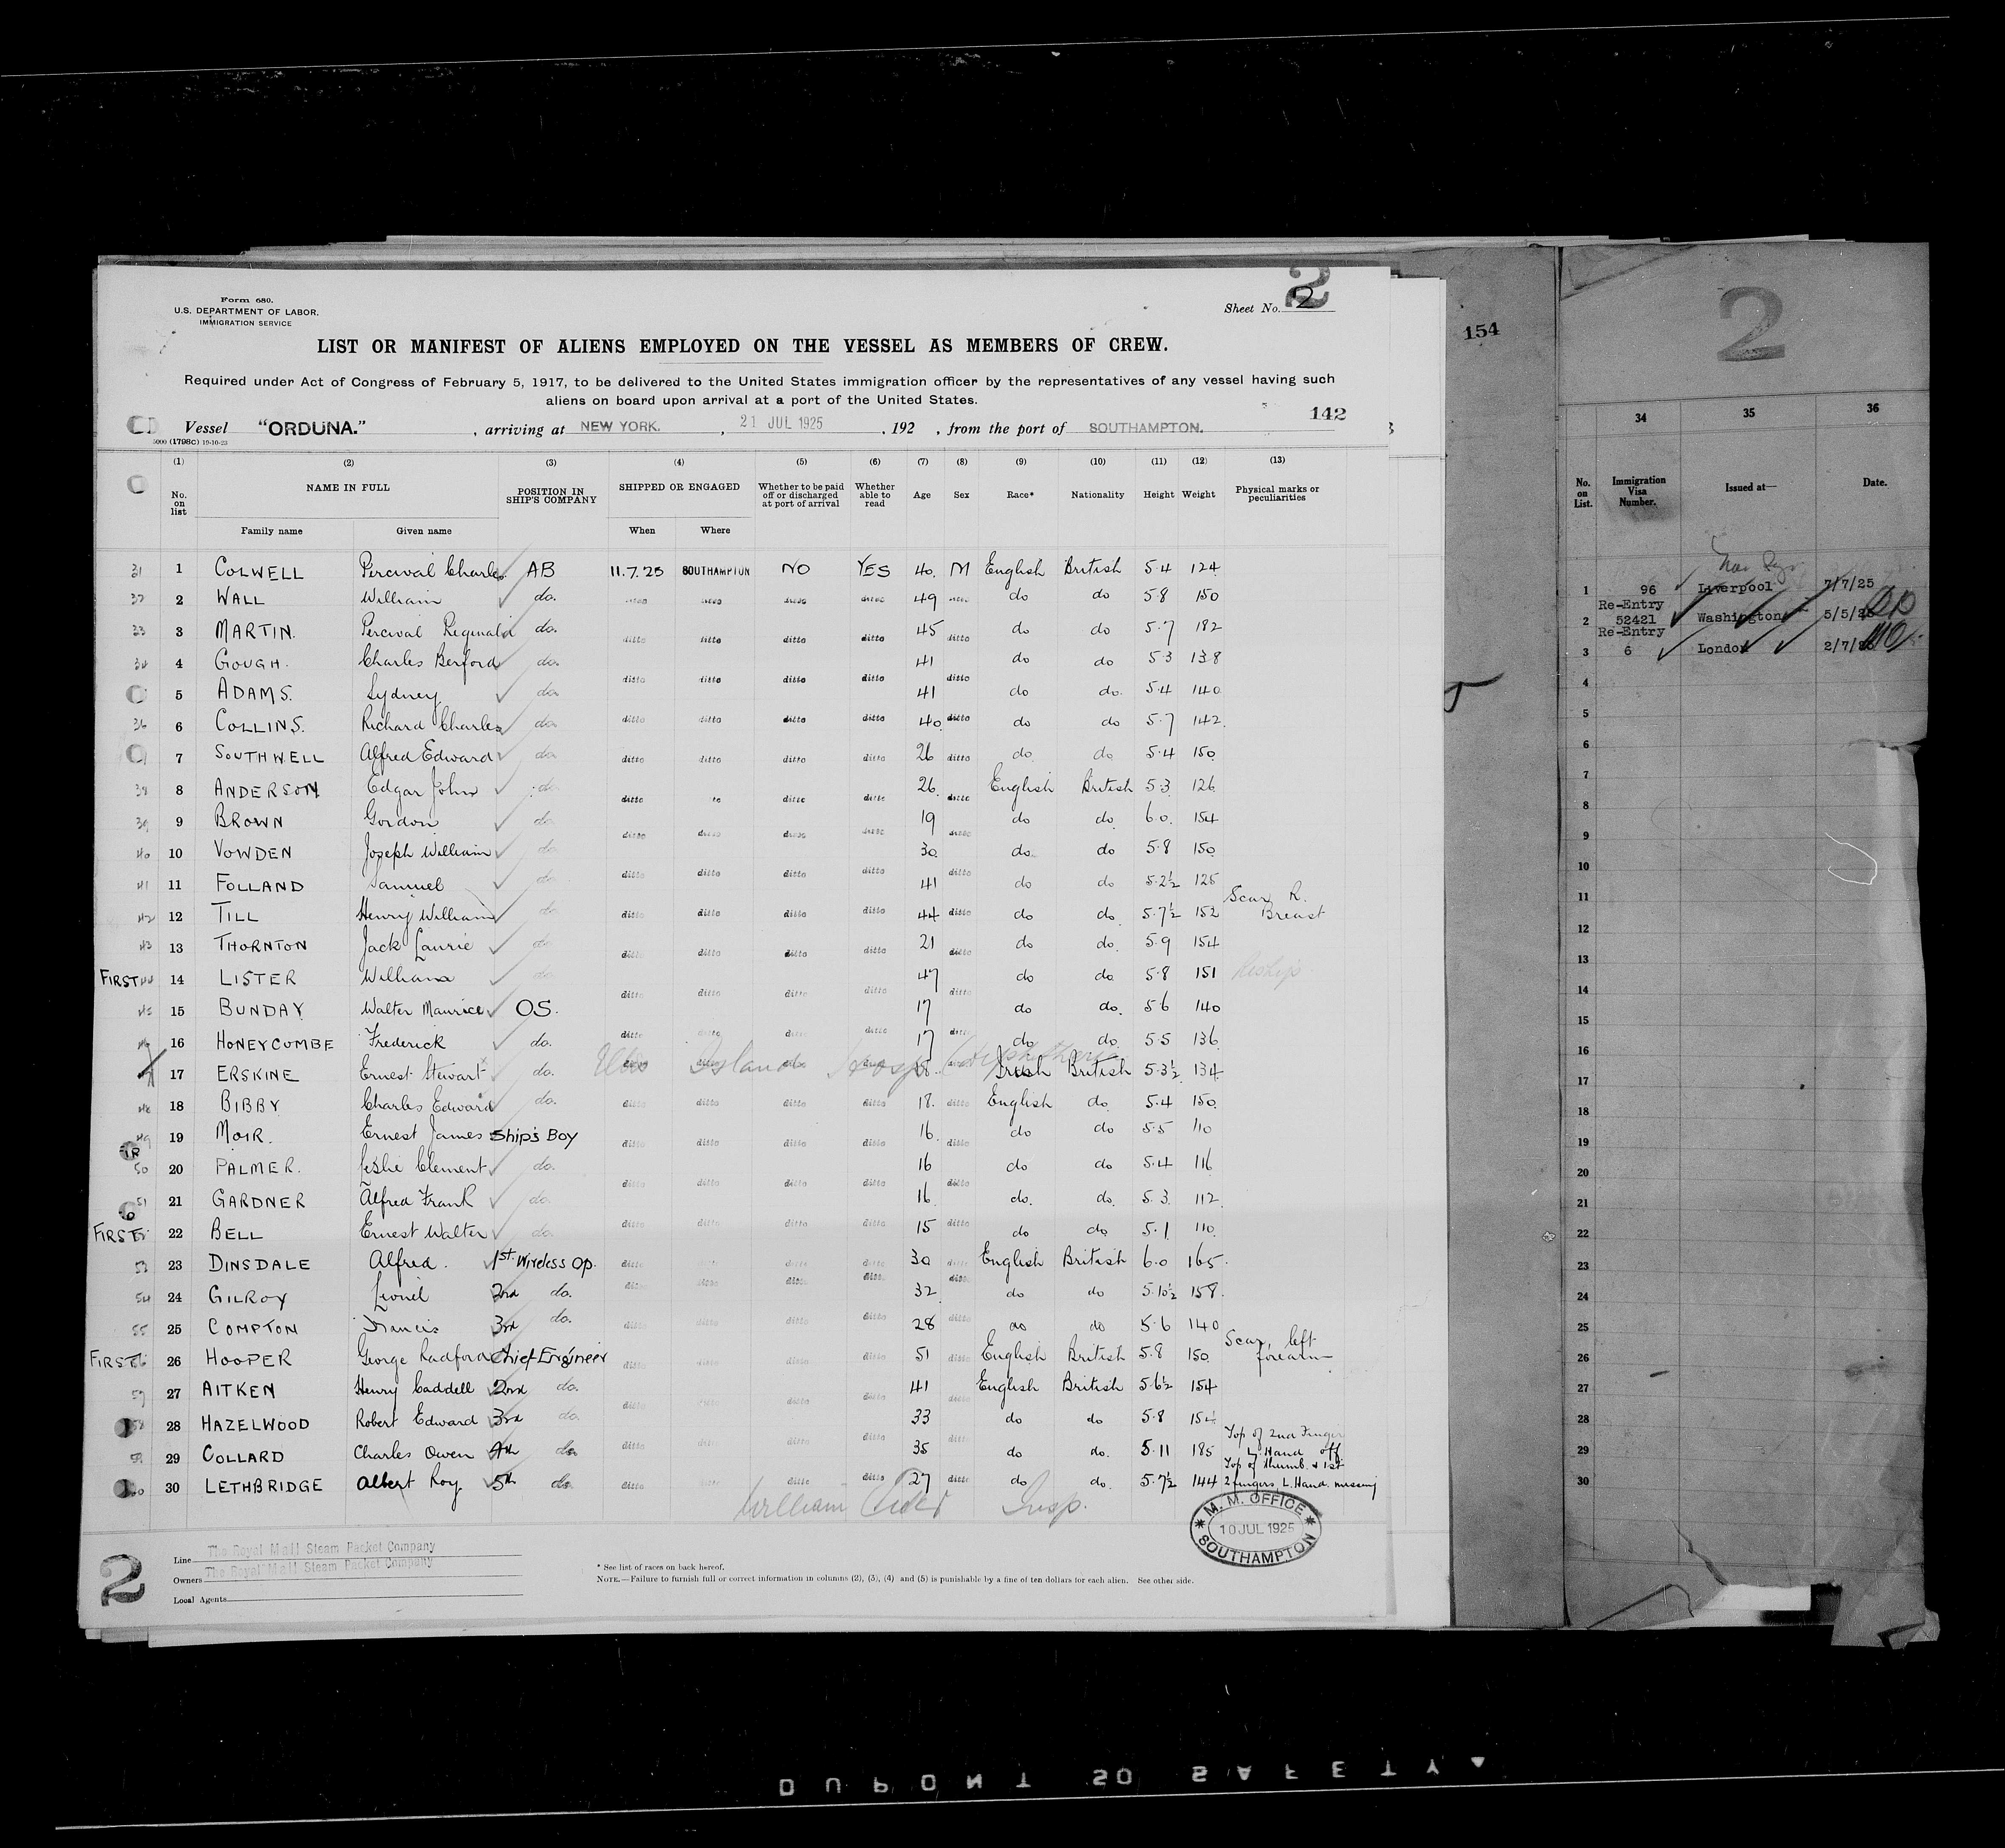 2
Form 680.
U.S. DEPARTMENT OF LABOR.
IMMIGRATION SERVICE
Sheet No. 2
LIST OR MANIFEST OF ALIENS EMPLOYED ON THE VESSEL AS MEMBERS OF CREW.
Required under Act of Congress of February 5, 1917, to be delivered to the United States immigration officer by the representatives of any vessel having such
aliens on board upon arrival at a port of the United States.
142
Vessel "ORDUNA." , arriving at NEW YORK. , 21 JUL 1925 , 192 , from the port of SOUTHAMPTON.
5000 (1798C) 19-10-23
(1) (2) (3) (4) (5) (6) (7) (8) (9) (10) (11) (12) (13)
No. on list NAME IN FULL POSITION IN SHIP'S COMPANY SHIPPED OR ENGAGED Whether to be paid off or discharged at port of arrival Whether able to read Age Sex Race* Nationality Height Weight Physical marks or peculiarities
Family name Given name When Where
31 1 COLWELL Percival Charles AB 11.7.25 SOUTHAMPTON NO YES 40. M English British 5.4 124
2 WALL William do. ditto ditto ditto ditto 49 ditto do do 5.8 150
33 3 MARTIN. Percival Reginald do. ditto ditto ditto ditto 45 ditto do do 5.7 182
34 4 GOUGH. Charles Berford do. ditto ditto ditto ditto 41 ditto do do 5.3 138
5 ADAMS. Sydney do. 41 do do. 5.4 140
36 6 COLLINS. Richard Charles do. ditto ditto ditto ditto 40 ditto do do 5.7 142
7 SOUTHWELL Alfred Edward do. ditto ditto ditto ditto 26 ditto do. do. 5.4 150
38 8 ANDERSON Edgar John do ditto ditto ditto 26. ditto English British 5.3 126
39 9 BROWN Gordon do ditto ditto ditto ditto 19 ditto do do 6.0. 154
40 10 VOWDEN Joseph William do ditto ditto ditto ditto 30 ditto do. do 5.8 150
41 11 FOLLAND Samuel do 41 do do 5.2½ 125
42 12 TILL Henry William do ditto ditto ditto ditto 44 ditto do do. 5.7½ 152 Scar R. Breast
43 13 THORNTON Jack Laurie do ditto ditto ditto ditto 21 ditto do do. 5.9 154
FIRST 44 14 LISTER William do ditto ditto ditto ditto 47 ditto do do 5.8 151
45 15 BUNDAY Walter Maurice OS. 17 do do. 5.6 140
46 16 HONEYCOMBE Frederick do. ditto ditto ditto 17 ditto do do. 5.5 136
17 ERSKINE Ernest Stewart do. Ellis Island Hosp 18 Irish British 5.3½ 134
48 18 BIBBY Charles Edward do. ditto ditto ditto ditto 18. ditto English do 5.4 150
49 19 MOIR. Ernest James Ship's Boy ditto ditto ditto ditto 16. ditto do do 5.5 110
50 20 PALMER. Leslie Clement do. ditto ditto ditto ditto 16 ditto do do 5.4 116
51 21 GARDNER Alfred Frank do. 16 do. do. 5.3. 112
FIRST 22 BELL Ernest Walter do. ditto ditto ditto ditto 15 ditto do do 5.1 110
53 23 DINSDALE Alfred. 1st Wireless Op. ditto ditto ditto 30 ditto English British 6.0 165.
54 24 GILROY Lionel 2nd do. ditto ditto ditto ditto 32 ditto do do 5.10½ 158.
55 25 COMPTON Francis 3rd do. ditto ditto ditto ditto 28 ditto do do 5.6 140
FIRST 26 HOOPER George Radford Chief Engineer ditto ditto ditto ditto 51 ditto English British 5.8 150 Scar, left forearm
57 27 AITKEN Henry Caddell 2nd do. ditto ditto ditto 41 English British 5.6½ 154
28 HAZELWOOD Robert Edward 3rd do. 33 do do 5.8 154
59 29 COLLARD Charles Owen 4th do. ditto ditto ditto ditto 35 ditto do do. 5.11 185 Top of 2nd Finger L. Hand off
30 LETHBRIDGE Albert Roy 5th do. ditto ditto ditto 27 ditto do do. 5.7½ 144 Top of thumb & 1st 2 fingers L. Hand. missing
William Insp.
M. M. OFFICE
10 JUL 1925
SOUTHAMPTON
2
Line The Royal Mail Steam Packet Company
Owners The Royal Mail Steam Packet Company
Local Agents
* See list of races on back hereof.
NOTE.—Failure to furnish full or correct information in columns (2), (3), (4) and (5) is punishable by a fine of ten dollars for each alien. See other side.
154
2
34 35 36
No. on List. Immigration Visa Number. Issued at— Date.
1 96 Liverpool 7/7/25
Re-Entry
2 52421 Washington 5/5/25
Re-Entry
3 6 London 2/7/25
4
5
6
7
8
9
10
11
12
13
14
15
16
17
18
19
20
21
22
23
24
25
26
27
28
29
30
DUPONT SO SAFETY